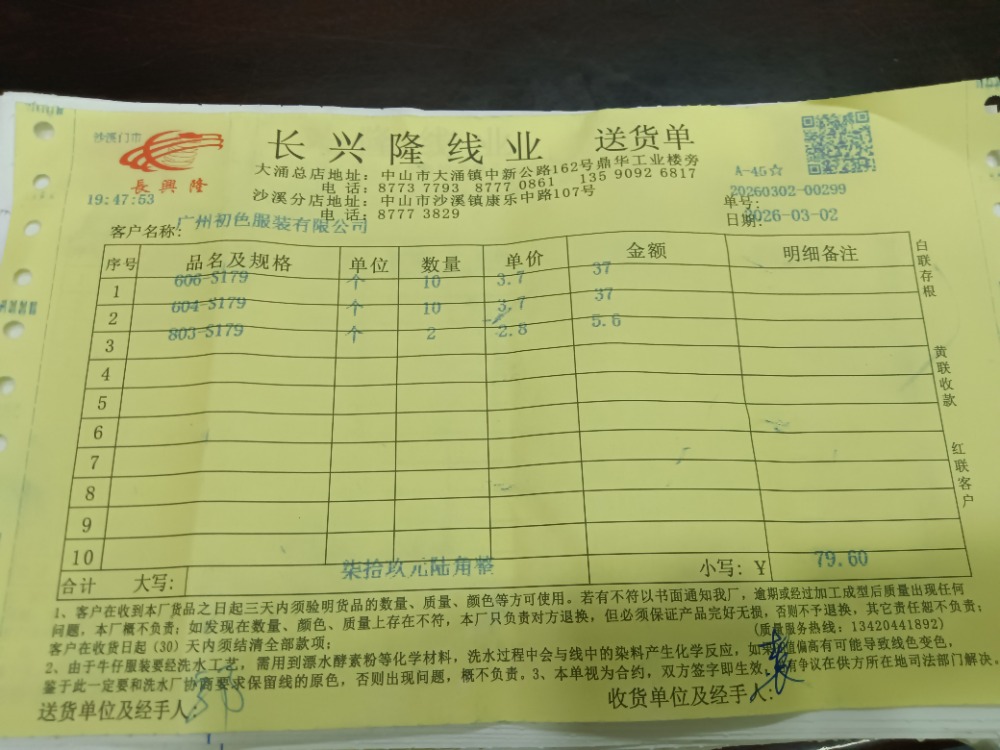 沙溪门市
長興隆
长兴隆线业 送货单
大涌总店地址：中山市大涌镇中新公路162号鼎华工业楼旁
电 话：8773 7793 8777 0861 135 9092 6817
沙溪分店地址：中山市沙溪镇康乐中路107号
电 话：8777 3829
A-45☆
19:47:53
单号：20260302-00299
日期：2026-03-02
客户名称：广州初色服装有限公司
序号 品名及规格 单位 数量 单价 金额 明细备注
1 606-S179 个 10 3.7 37
2 604-S179 个 10 3.7 37
3 803-S179 个 2 2.8 5.6
4
5
6
7
8
9
10
合计 大写：柒拾玖元陆角整 小写：￥ 79.60
白联存根
黄联收款
红联客户
1、客户在收到本厂货品之日起三天内须验明货品的数量、质量、颜色等方可使用。若有不符以书面通知我厂，逾期或经过加工成型后质量出现任何
问题，本厂概不负责；如发现在数量、颜色、质量上存在不符，本厂只负责对方退换，但必须保证产品完好无损，否则不予退换，其它责任恕不负责；
客户在收货日起（30）天内须结清全部款项； （质量服务热线：13420441892）
2、由于牛仔服装要经洗水工艺，需用到漂水酵素粉等化学材料，洗水过程中会与线中的染料产生化学反应，如果 值偏高有可能导致线色变色，
鉴于此一定要和洗水厂协商要求保留线的原色，否则出现问题，概不负责。3、本单视为合约，双方签字即生效， 有争议在供方所在地司法部门解决。
送货单位及经手人： 收货单位及经手人：